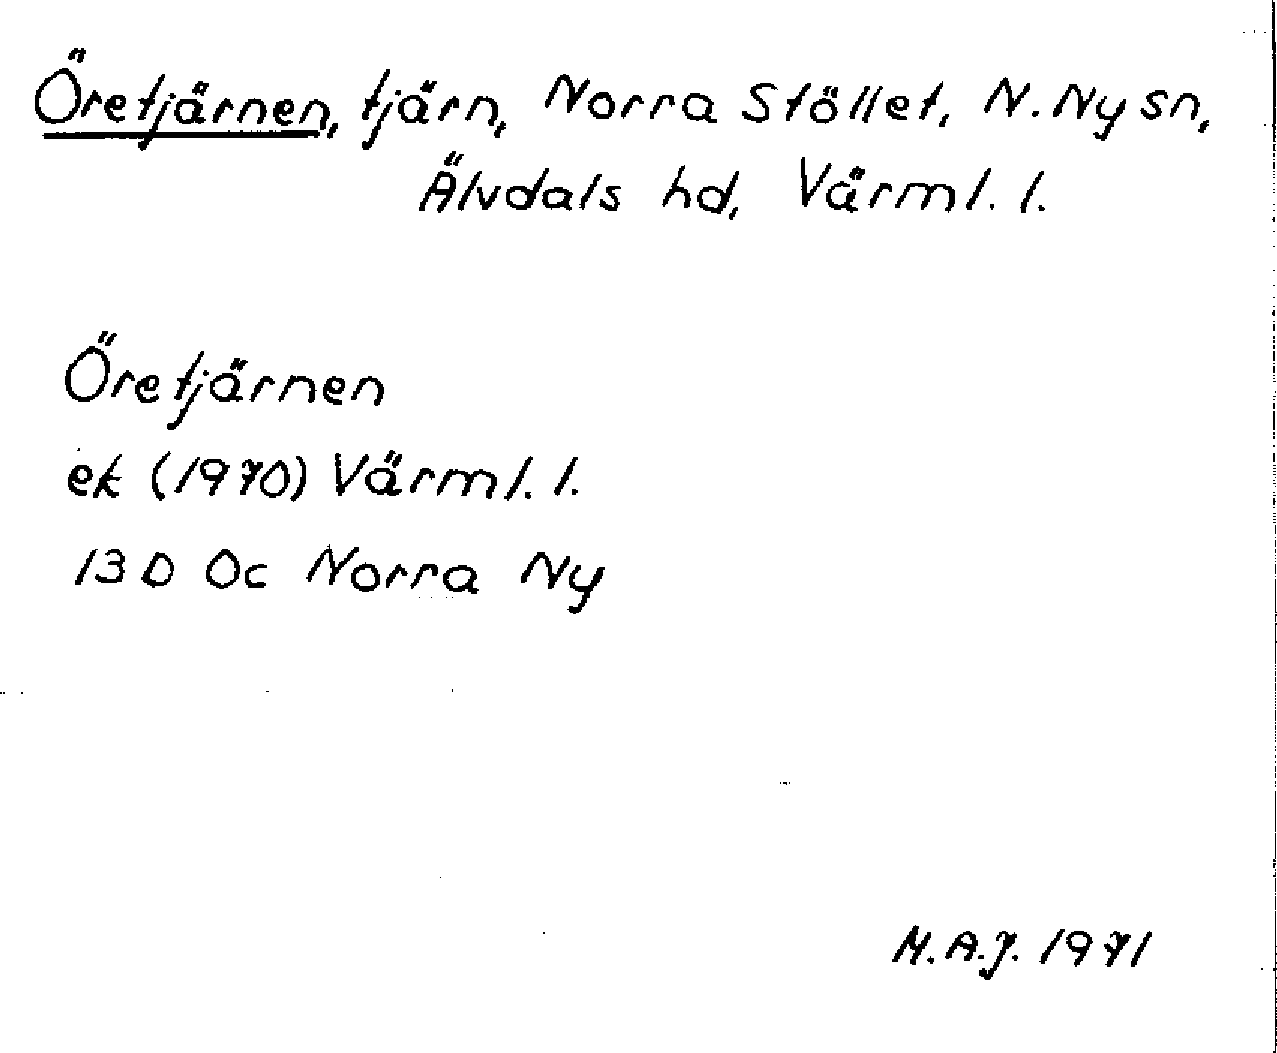 Öretjärnen, tjärn, Norra Stöllet, N. Ny sn,
Älvdals hd, Värml. l.
Öretjärnen
ek (1970) Värml. l.
13 D 0c Norra Ny
M.A.J. 1971